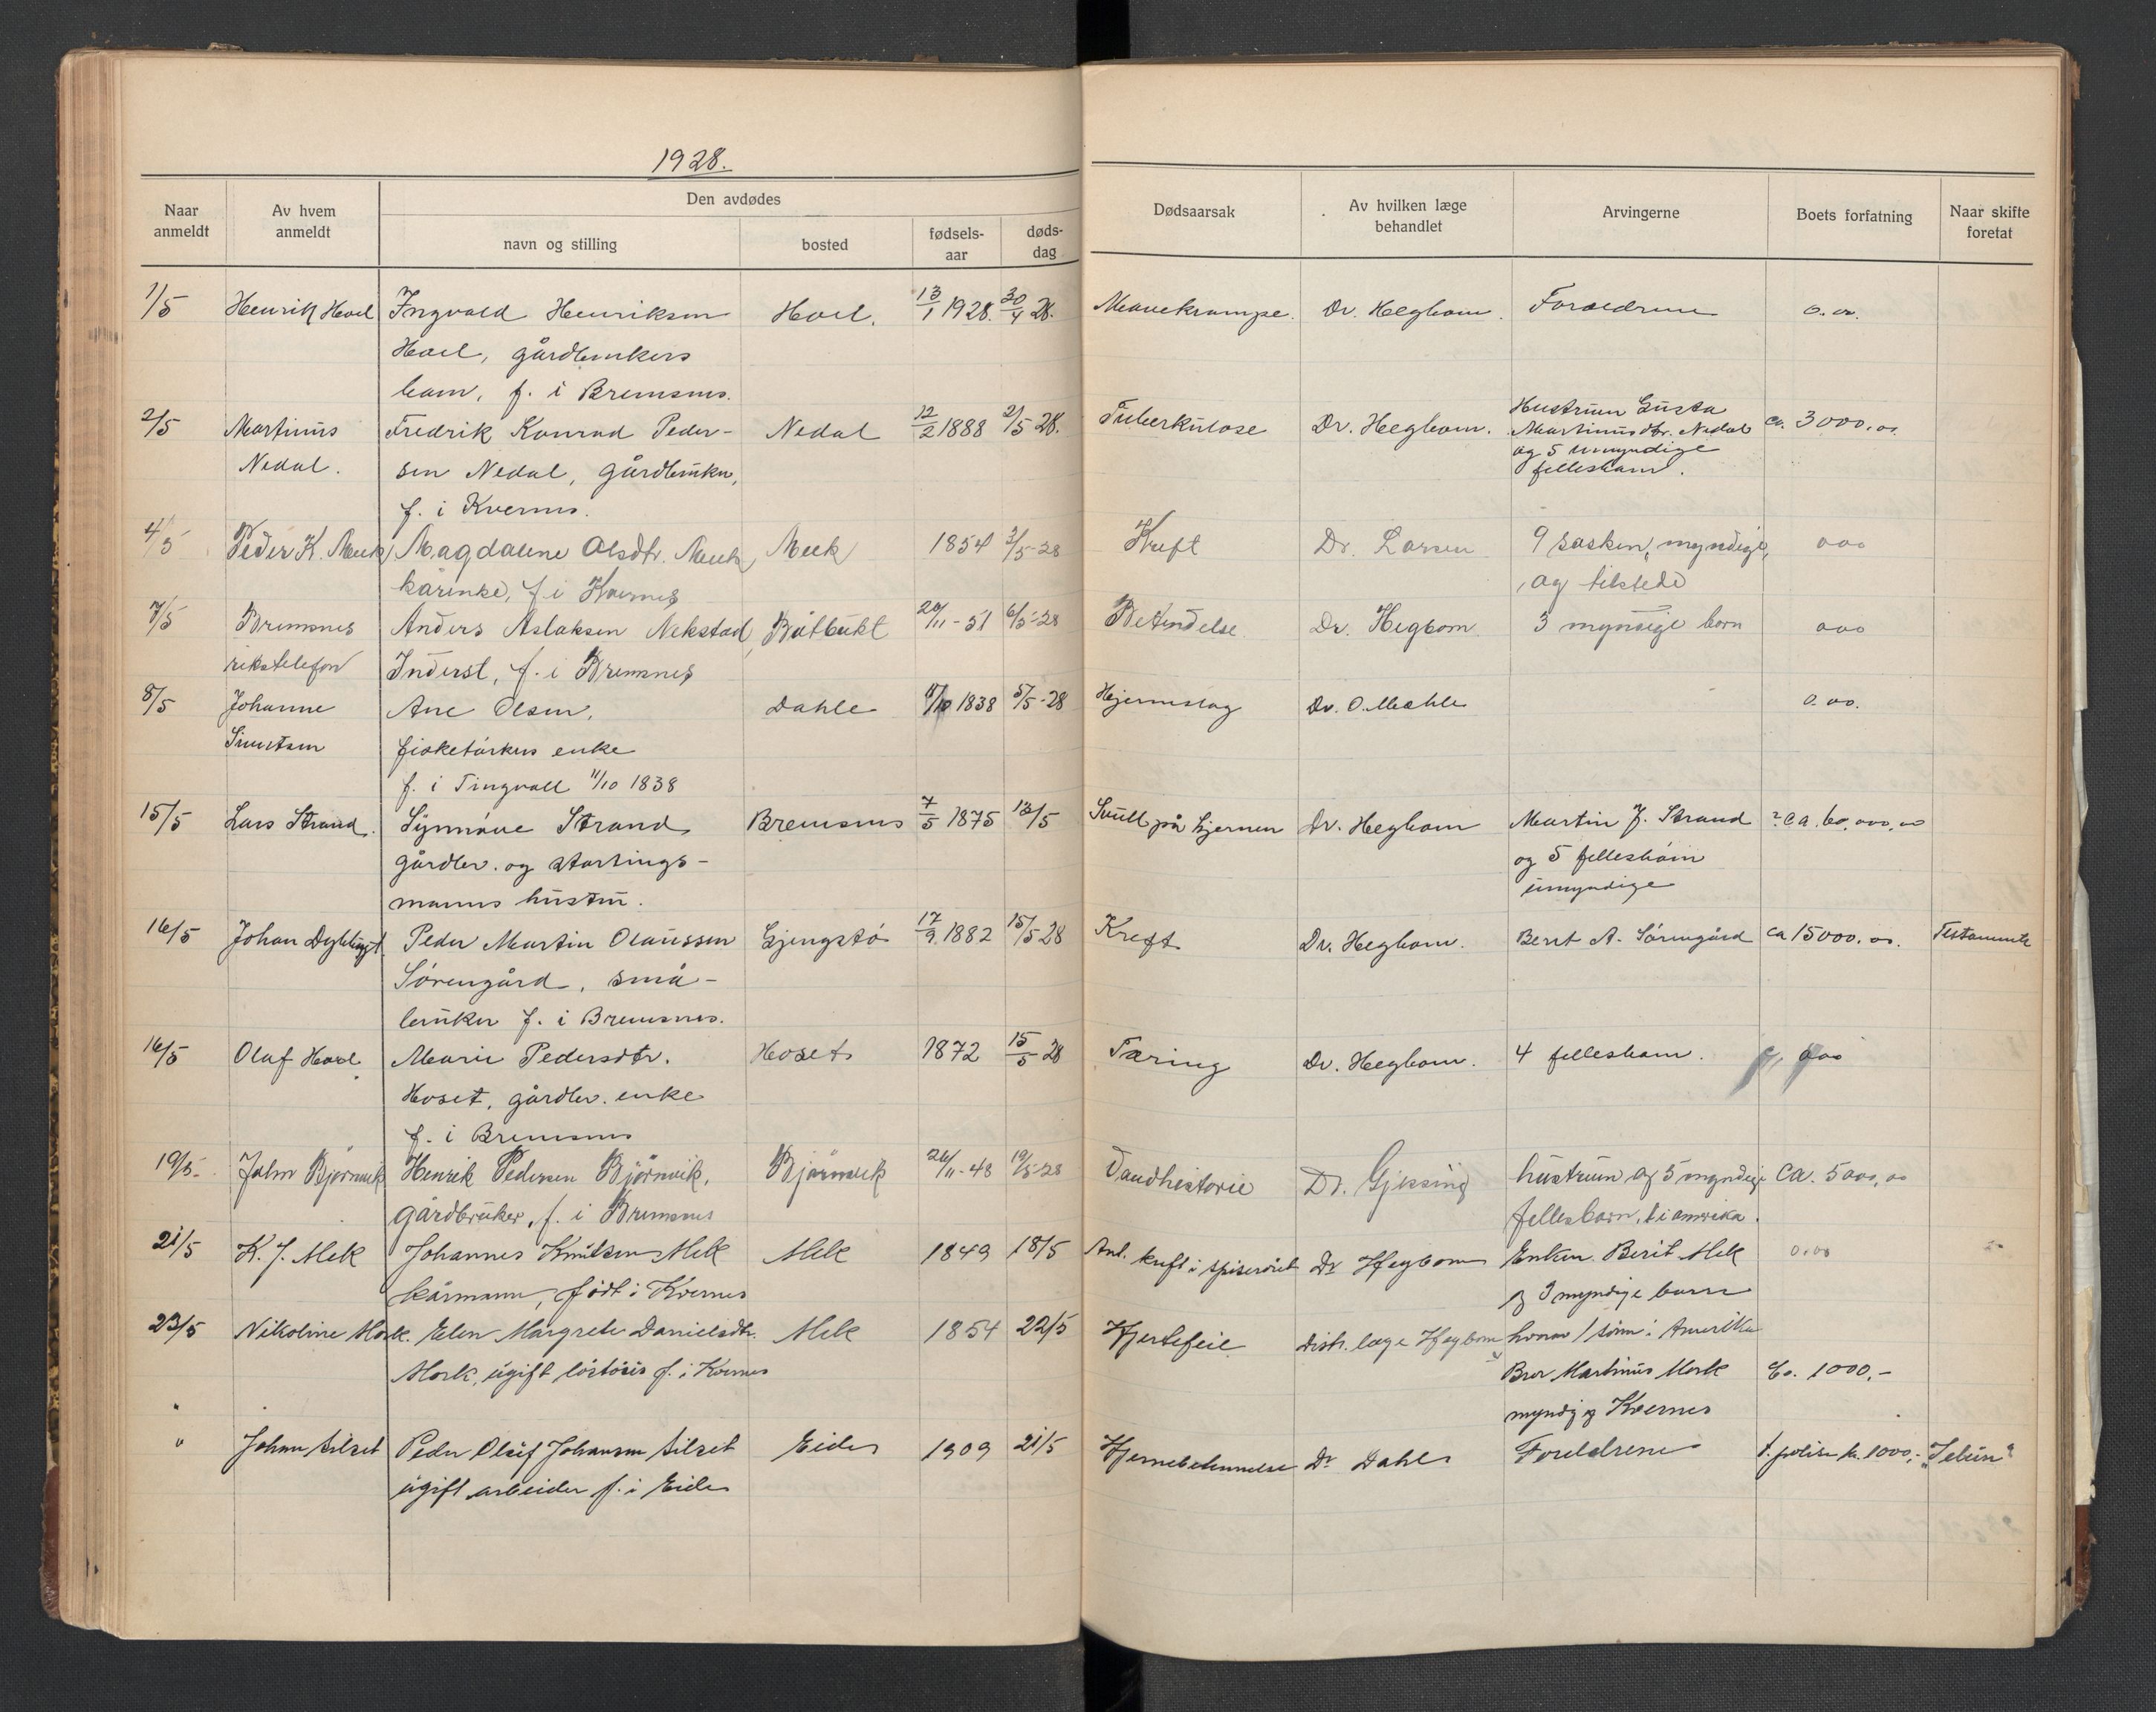 1928.
Naar anmeldt
Av hvem anmeldt
Den avdødes
navn og stilling
bosted
fødsels-aar
døds-dag
Dødsaarsak
Av hvilken læge behandlet
Arvingerne
Boets forfatning
Naar skifte foretat
1/5 Henrik Hoel Ingvald Henriksen Hoel. 13/1 1928. 30/4 28. Mavekrampe. Dr. Hegbom. Foreldrene 0.00.
Hoel, gårdbrukers
barn, f. i Bremsnes.
2/5 Martinus Fredrik Konrad Peder- Nedal 12/2 1888 2/5 28. Tuberkulose Dr. Hegbom. Hustruen Gusta ca. 3000.00
Martinusdtr. Nedal
Nedal. sen Nedal, gårdbruker, og 5 umyndige
fellesbarn.
f. i Kvernes.
4/5 Peder K. Meek Magdalene Olsdtr. Meek, Meek 1854 3/5-28 Kreft Dr. Larsen 9 søsken, myndige, 000
kårenke, f i Kvernes og tilstede
7/5 Bremsnes Anders Aslaksen Nekstad, Båtbukt 20/11-51 6/5-28 Betendelse. Dr. Hegbom 3 myndige born 000
rikstelefon Inderst, f. i Bremsnes
8/5 Johanne Ane Olsen, Dahle 11/10 1838 5/5-28 Hjerneslag Dr. O. Mæhle 0.00.
fisketørkers enke
f. i Tingvoll 11/10 1838
15/5 Lars Strand. Synnøve Strand Bremsnes 7/5 1875 13/5 Svull på hjernen Dr. Hegbom Martin J. Strand ? ca. 60,000,00
gårdbr. og stortings- og 5 fellesbarn
manns hustru. umyndige
16/5 Johan Peder Martin Olaussen Gjengstø 17/9 1882 15/5 28 Kreft Dr. Hegbom. Berit A. Sørengård ca 15000.00. Testamente
Sørengård, små-
bruker f. i Bremsnes.
16/5 Olaf Hoel Marie Pedersdtr. Hoset 1872 15/5 28 Tæring Dr. Hegbom. 4 fellesbarn. 000
Hoset, gårdbr. enke
f. i Bremsnes
19/5- John Bjørnvik Henrik Pedersen Bjørnvik, Bjørnvik 26/11-48 19/5-28 Dr. Gjessing hustruen og 5 myndige Ca. 5000,00
Gårdbruker, f. i Bremsnes fellesbarn, 1 i amerika.
21/5 K. J. Mek Johannes Knutsen Mek Mek 1849 18/5 Ant. kreft i spiserøret Dr Hegbom Enken Berit Mek 0.00
kårmann, født i Kvernes og 3 myndige barn
23/5 Nikoline Mork. Elen Margrete Danielsdtr. Mek 1854 22/5 Hjertefeil Distr. læge Hegbom hvorav 1 sønn i Amerika
Mork, ugift f. i Kvernes Bror Martinus Mork Ca. 1000.-
myndig og Kvernes
" Johan Silset Peder Olaf Johansen Silset Eide 1909 21/5 Hjernebetennelse Dr Dahl Foreldrene polise kr. 1000,-
ugift arbeider f. i Eide